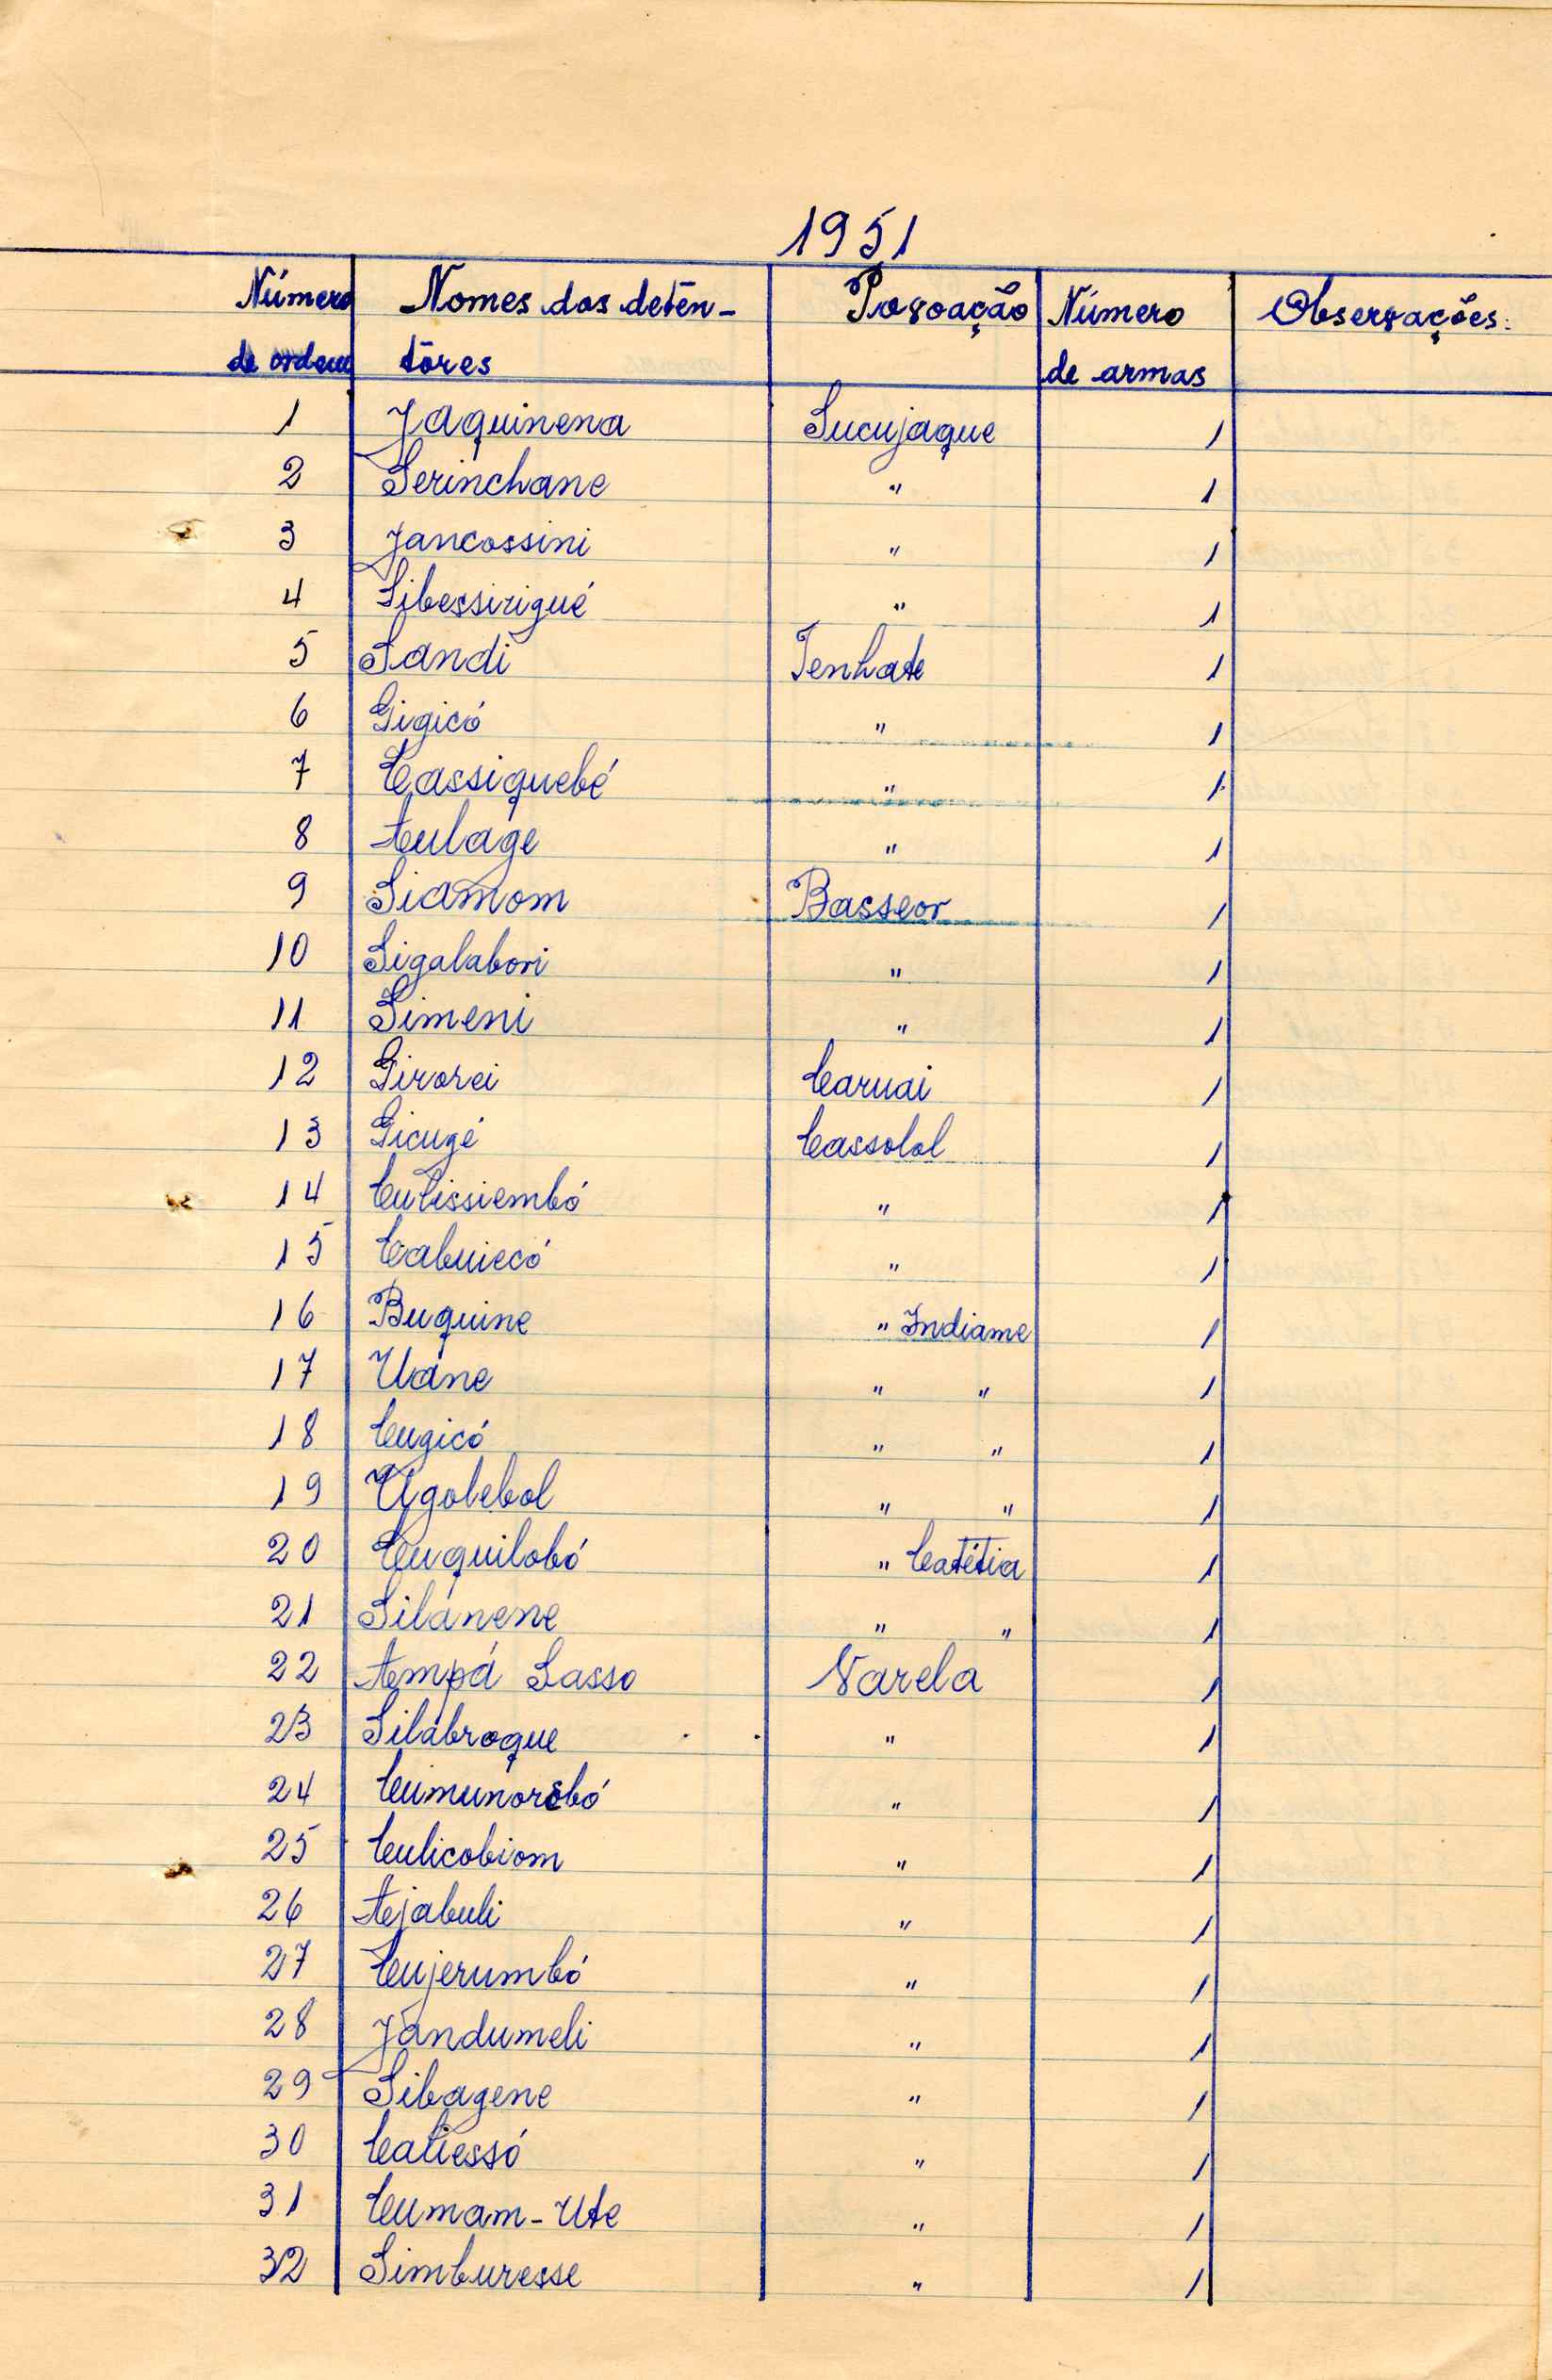 1951
Número de ordem Nomes dos detên-tôres Povoação Número de armas Observações:
1 Jaquinena Sucujaque 1
2 Serinchane " 1
3 Jancossini " 1
4 Sibessirigué " 1
5 Sandi Tenhate 1
6 Gigicó " 1
7 Cassiquebé " 1
8 Aulage " 1
9 Siamom Basseor 1
10 Sigalabori " 1
11 Simeni " 1
12 Girorei Caruai 1
13 Gicugé Cassolol 1
14 Culissiembó " 1
15 Cabuiecó " 1
16 Buquine " Indiame 1
17 Uane " " 1
18 Cugicó " " 1
19 Ugolebol " " 1
20 Cuquilobó " Catétia 1
21 Silánene " " 1
22 Ampá Sasso Varela 1
23 Silabroque " 1
24 Cumunorobó " 1
25 Culicobiom " 1
26 Ajabuli " 1
27 Cujerumbó " 1
28 Jandumeli " 1
29 Sibagene " 1
30 Caliessó " 1
31 Cumam-Ute " 1
32 Simburesse " 1